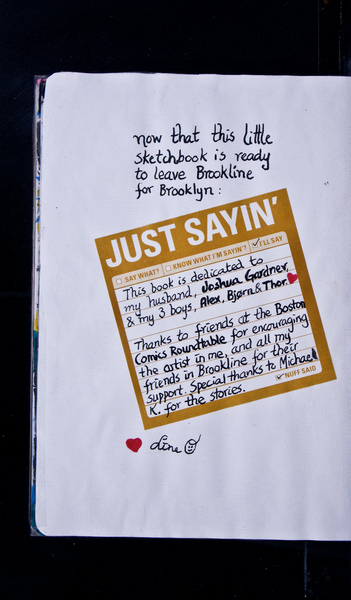 now that this little
sketchbook is ready
to leave Brookline
for Brooklyn :
JUST SAYIN'
SAY WHAT? KNOW WHAT I'M SAYIN'? I'LL SAY
This book is dedicated to
my husband, Joshua Gardner,
& my 3 boys, Alex, Bjørn & Thor.
Thanks to friends at the Boston
Comics Roundtable for encouraging
the artist in me, and all my
friends in Brookline for their
support. Special thanks to Michael
K. for the stories.
NUFF SAID
Line